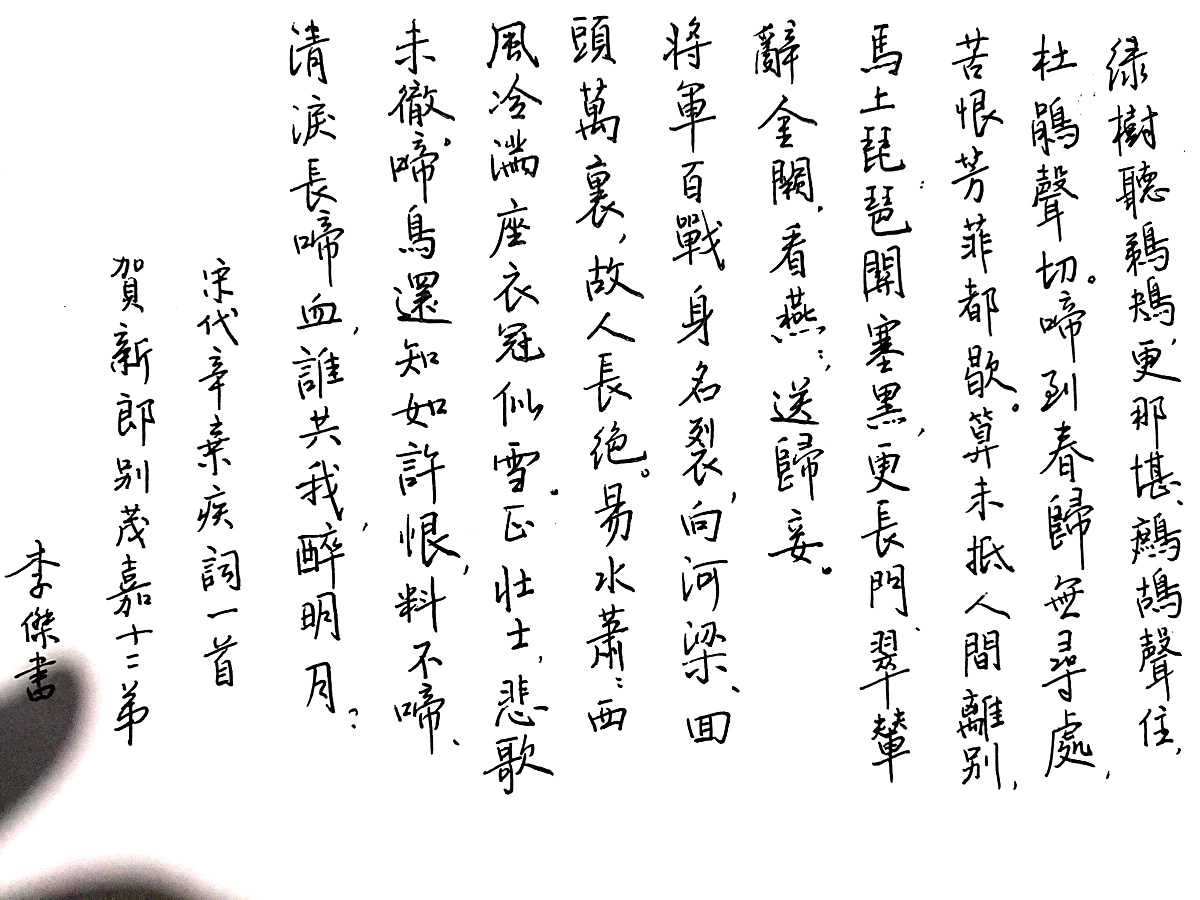 緑樹聽鵜鴂，更那堪、鷓鴣聲住，
杜鵑聲切。啼到春歸無尋處，
苦恨芳菲都歇。算未抵人間離别，
馬上琵琶關塞黑，更長門、翠輦
辭金闕，看燕：，送歸妾。
將軍百戰身名裂，向河梁、回
頭萬裏，故人長絶。易水蕭：西
風冷，滿座衣冠似雪。正壯士，悲歌
未徹。啼鳥還知如許恨，料不啼、
清淚長啼血，誰共我，醉明月？
宋代辛棄疾詞一首
賀新郎别茂嘉十二弟
李傑書